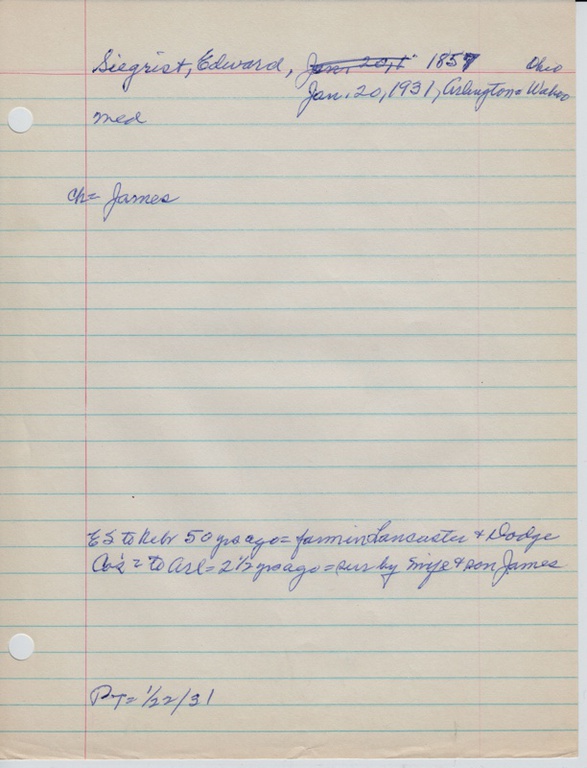 Siegrist, Edward, Jan. 20, 1857 Ohio
Jan. 20, 1931, Arlington = Wahoo
med
ch = James
ES to Nebr 50 yrs ago = farm in Lancaster & Dodge
Co's = to Arl = 2 1/2 yrs ago = sur by wife & son James
PT = 1/22/31